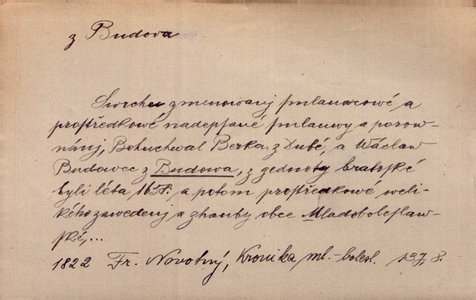 z Budova
Swrchu gmenowanj smlauwcowé a
prostředkowé nadepsané smlauwy a porow-
nánj, Bohuchwal Berka z Dubé, a Wáclaw
Budowec z Budowa, z gednoty bratrské
byli léta a potom prostředkowé weli-
kého zawedenj a zhauby obce Mladoboleslaw-
ské,...
1822 Fr. Novotný, Kronika ml.-bolesl.